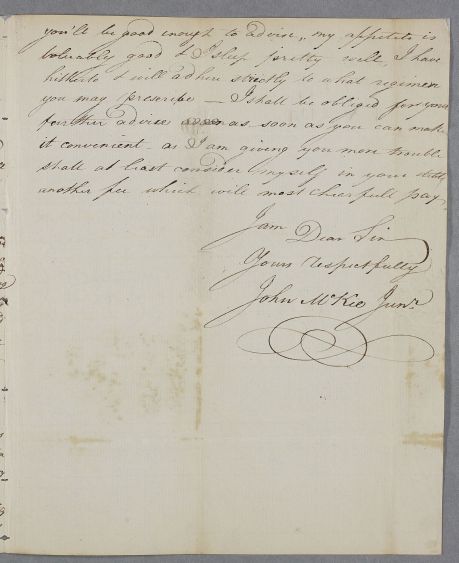 you'll be good enough to advise,, my appetite is
tolerably good & I sleep pretty well, I have
hitherto & will adhere strictly to what regimen
you may prescribe — I shall be obliged for your
farther advise as soon as you can make
it convenient - as I am giving you more trouble
shall at least consider myself in your debt
another fee which will most chearfull pay,
I am Dear Sir
Yours respectfully
John McKee Junr.